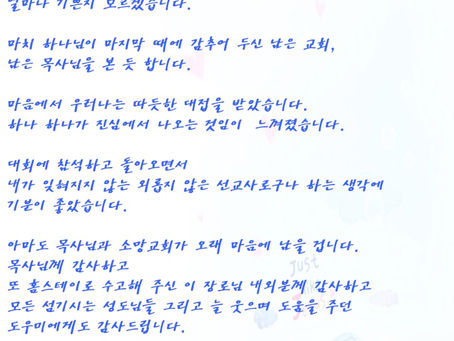 얼마나 기쁜지 모르겠습니다.
마치 하나님이 마지막 때에 감추어 두신 남은 교회,
남은 목사님을 본 듯 합니다.
마음에서 우러나는 따듯한 대접을 받았습니다.
하나 하나가 진심에서 나오는 것임이 느껴졌습니다.
대회에 참석하고 돌아오면서
내가 잊혀지지 않는 외롭지 않은 선교사로구나 하는 생각에
기분이 좋았습니다.
아마도 목사님과 소망교회가 오래 마음에 남을 겁니다.
목사님께 감사하고
또 홈스테이로 수고해 주신 이 장로님 내외분께 감사하고
모든 섬기시는 성도님들 그리고 늘 웃으며 도움을 주던
도우미에게도 감사드립니다.
Just